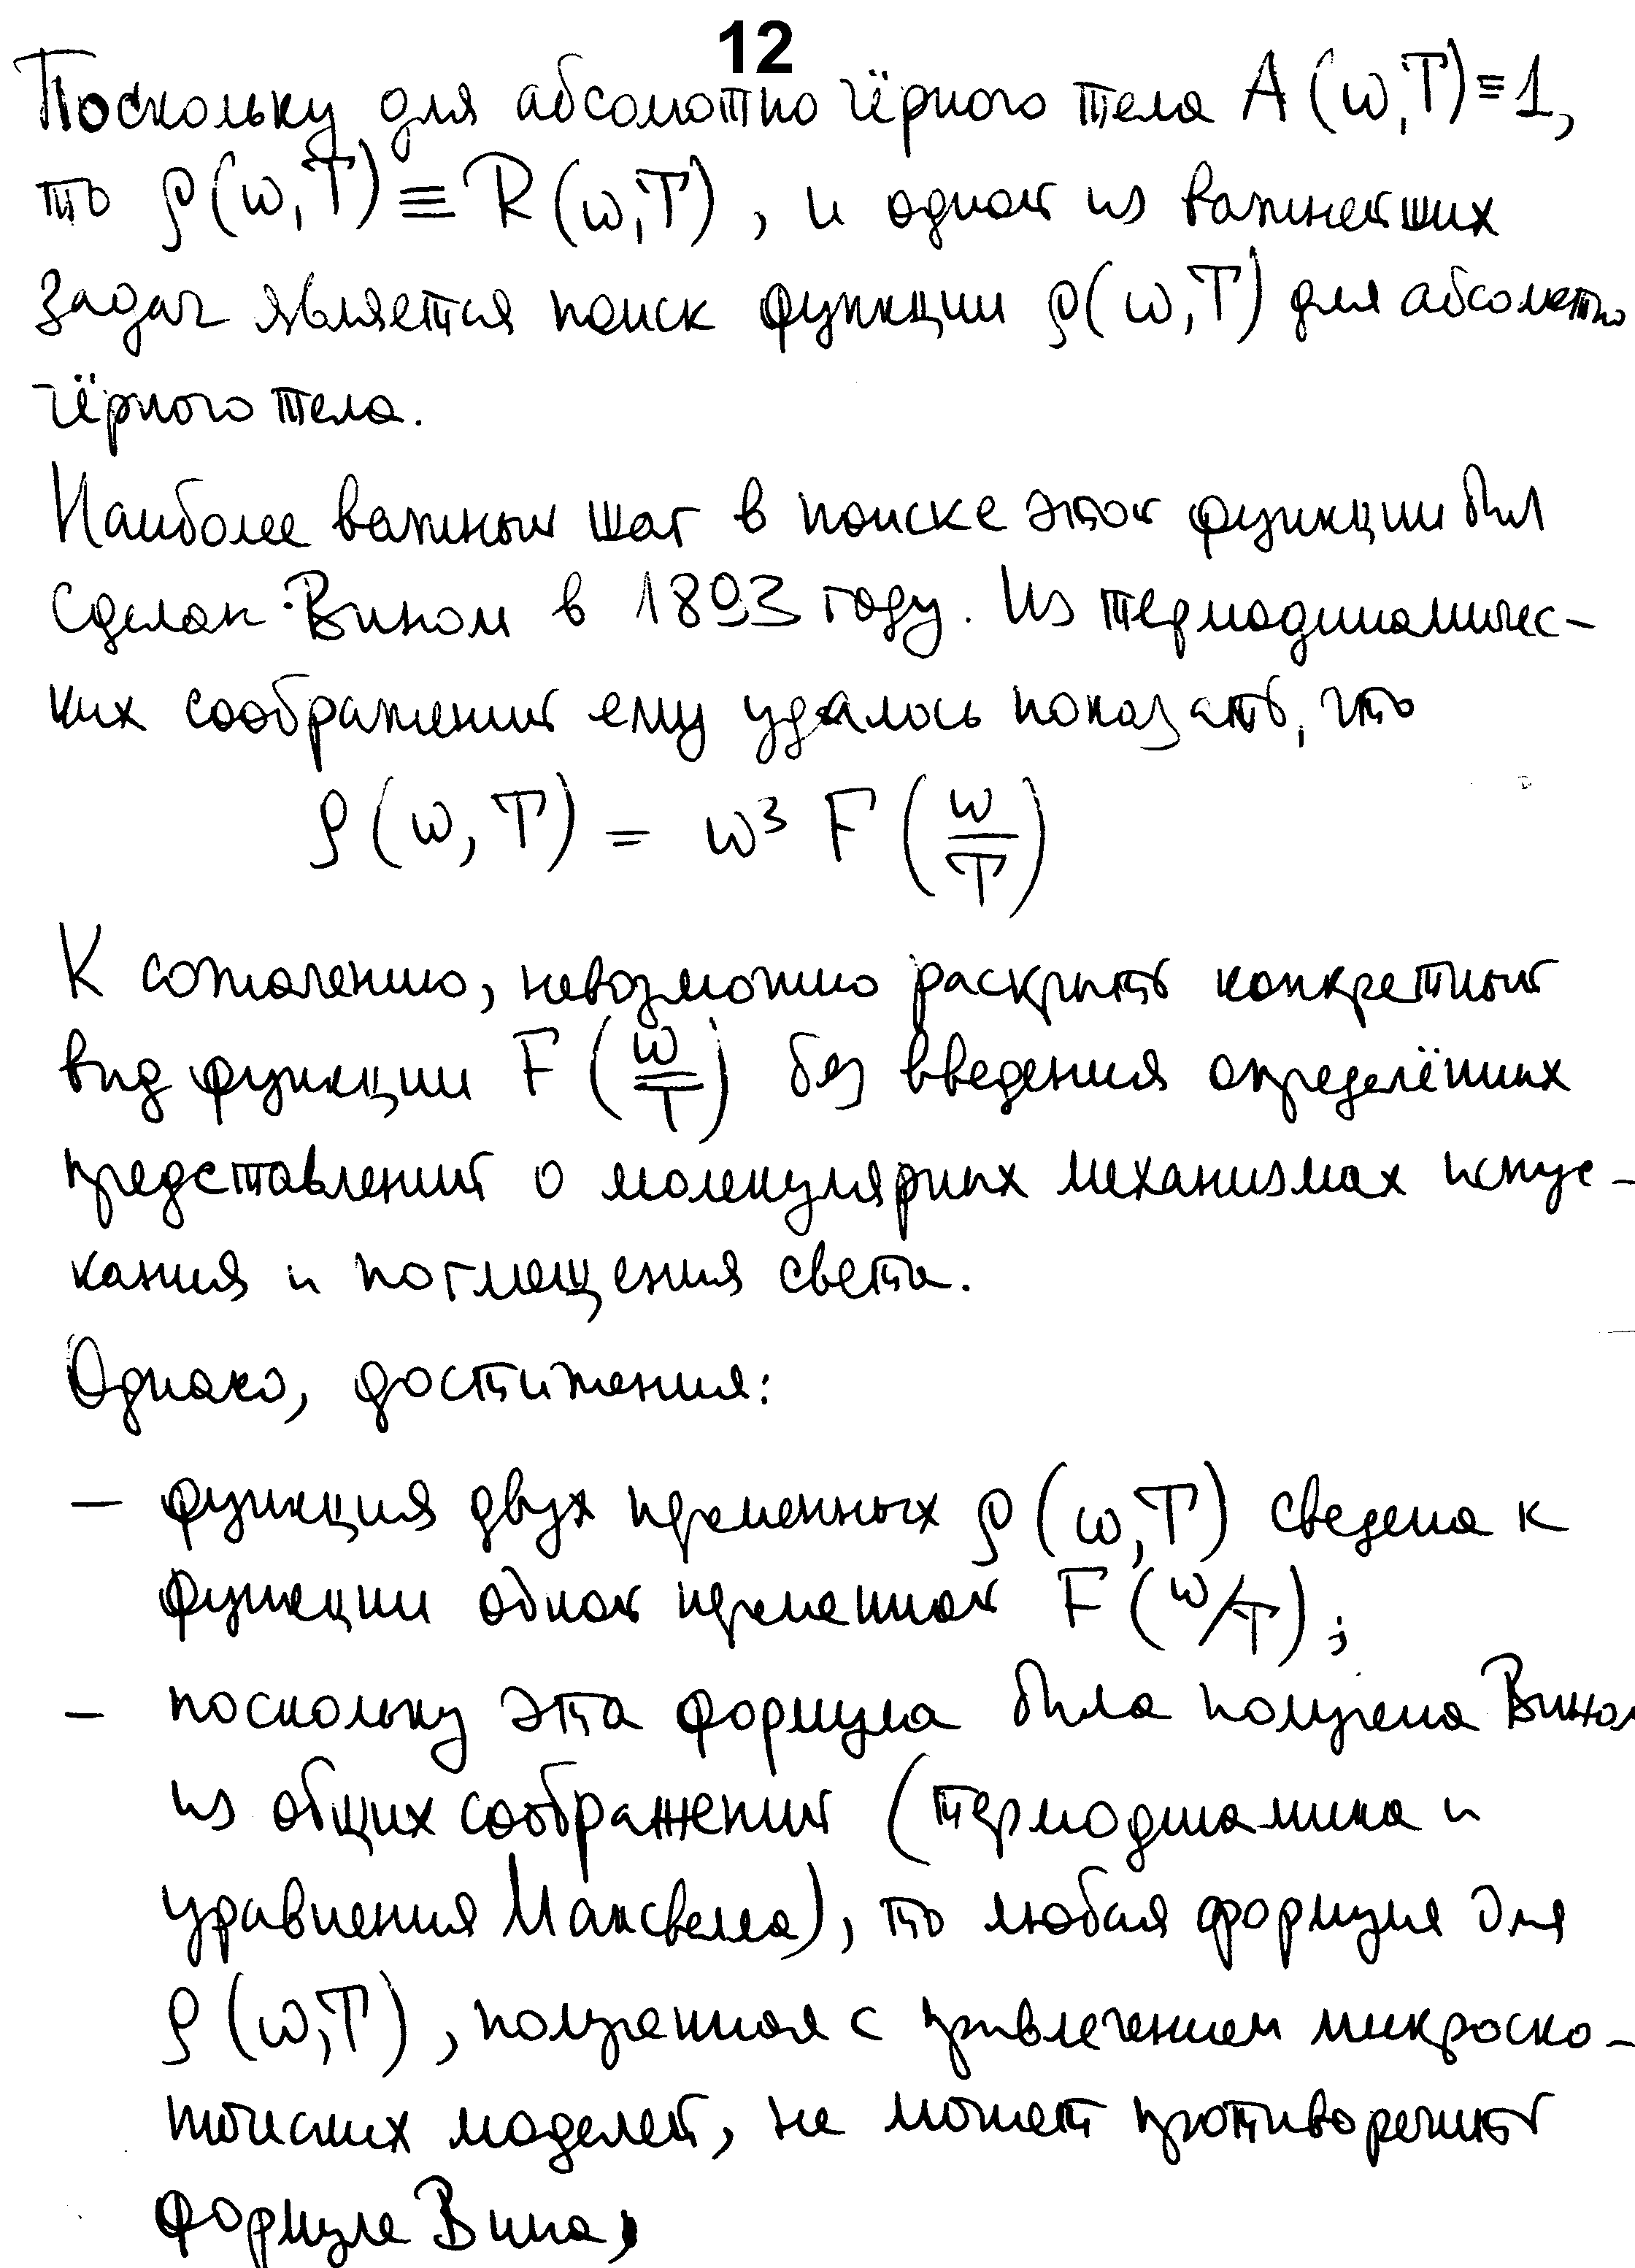 12
Поскольку для абсолютно чёрного тела A(ω,T)≡1,
то ρ(ω,T)≡R(ω,T), и одной из важнейших
задач является поиск функции ρ(ω,T) для абсолютно
чёрного тела.
Наиболее важный шаг в поиске этой функции был
сделан Вином в 1893 году. Из термодинамичес-
ких соображений ему удалось показать, что
ρ(ω, T) = ω³ F(ω/T)
К сожалению, невозможно раскрыть конкретный
вид функции F(ω/T) без введения определённых
представлений о молекулярных механизмах испус-
кания и поглощения света.
Однако, достижения:
— функция двух переменных ρ(ω,T) сведена к
функции одной переменной F(ω/T);
— поскольку эта формула была получена Вином
из общих соображений (термодинамика и
уравнения Максвелла), то любая формула для
ρ(ω,T), полученная с привлечением микроско-
пических моделей, не может противоречить
формуле Вина,